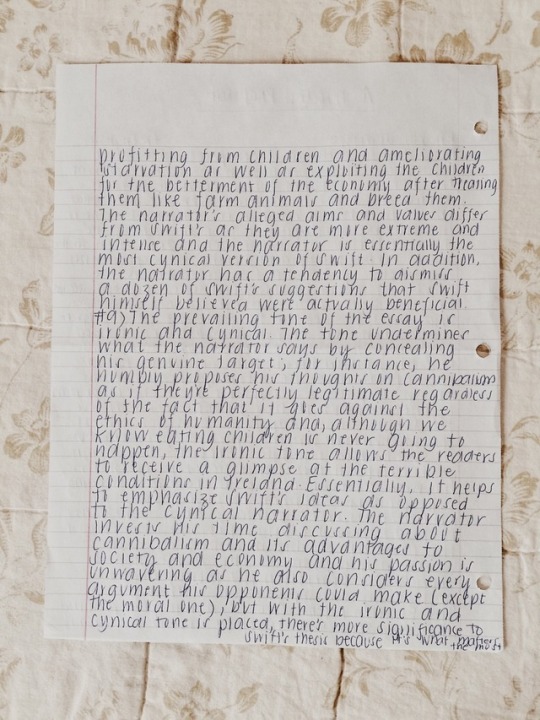 profitting from children and ameliorating
starvation as well as exploiting the children
for the betterment of the economy after treating
them like farm animals and breed them.
The narrator's alleged aims and values differ
from swift's as they are more extreme and
intense and the narrator is essentially the
most cynical version of swift. In addition,
the narrator has a tendency to dismiss
a dozen of swift's suggestions that swift
himself believed were actually beneficial.
#9) The prevailing tone of the essay is
ironic and cynical. The tone undermines
what the narrator says by concealing
his genuine target; for instance, he
humbly proposes his thoughts on cannibalism
as if they're perfectly legitimate regardless
of the fact that it goes against the
ethics of humanity and, although we
know eating children is never going to
happen, the ironic tone allows the readers
to receive a glimpse at the terrible
conditions in Ireland. Essentially, it helps
to emphasize swift's ideas as opposed
to the cynical narrator. The narrator
invests his time discussing about
cannibalism and its advantages to
society and economy and his passion is
unwavering as he also considers every
argument his opponents could make (except
the moral one), but with the ironic and
cynical tone is placed, there's more significance to
swift's thesis because it's what matters
the most